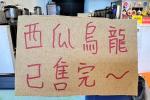 西瓜烏龍
已售完～